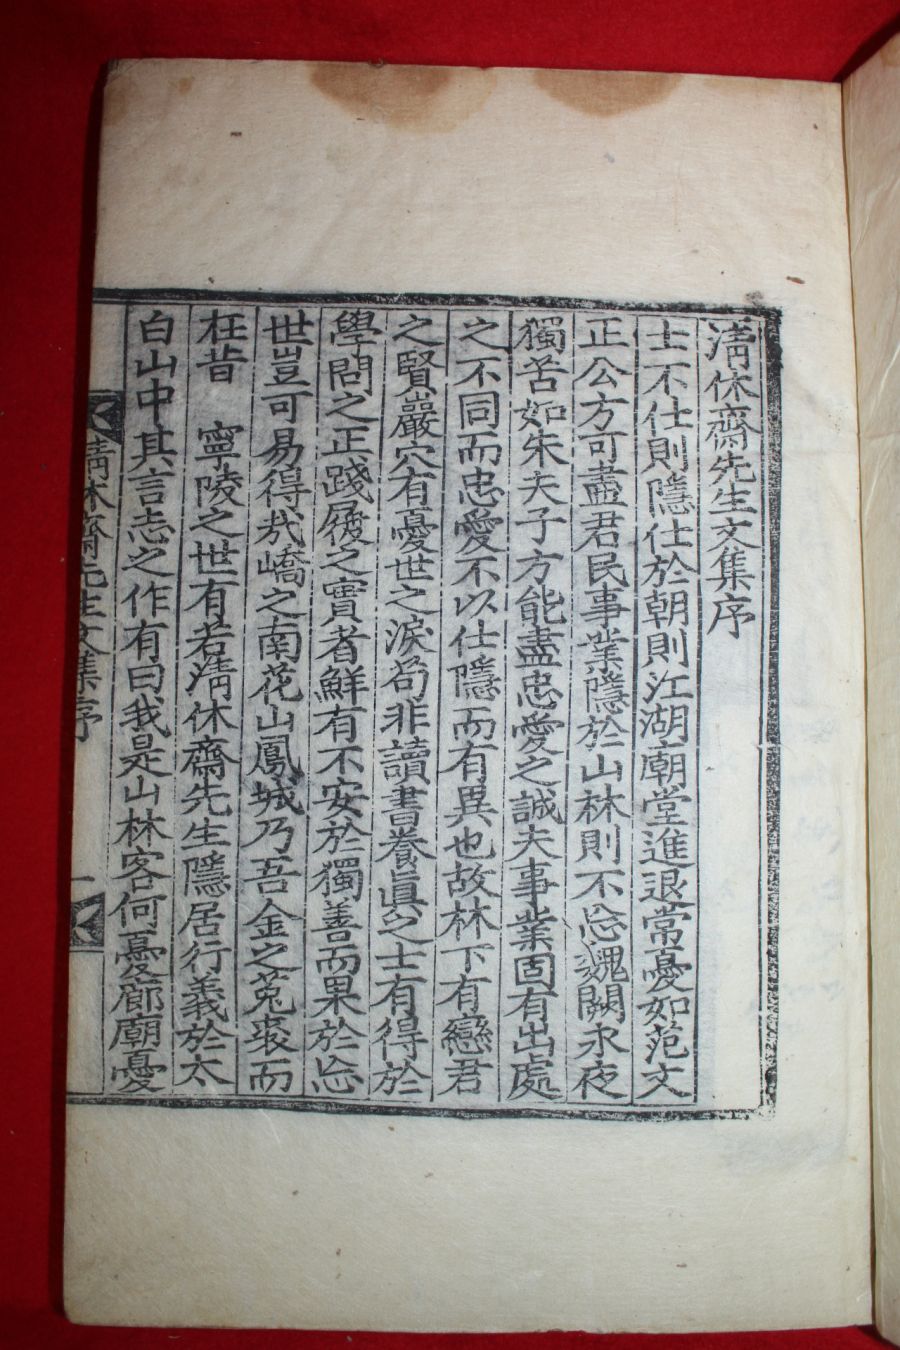 淸休齋先生文集序
士不仕則隱仕於朝則江湖廟堂進退常憂如范文
正公方可盡君民事業隱於山林則不忘魏闕永夜
獨苦如朱夫子方能盡忠愛之誠夫事業固有出處
之不同而忠愛不以仕隱而有異也故林下有戀君
之賢巖穴有憂世之淚苟非讀書養眞之士有得於
學問之正踐履之實者鮮有不安於獨善而果於忘
世豈可易得哉嶠之南花山鳳城乃吾金之菟裘而
在昔 寧陵之世有若淸休齋先生隱居行義於太
白山中其言志之作有曰我是山林客何爲廊廟憂
淸休齋先生文集序 一